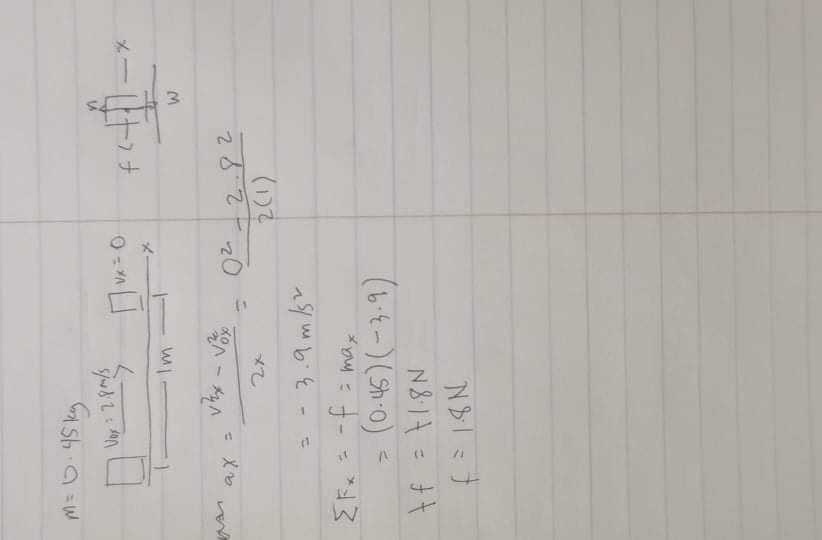 m = 0.45kg
Vox = 2.8m/s
Vx = 0
x
1m
n
f
x
w
ax = V²x - V²ox / 2x = 0² - 2.8² / 2(1)
= - 3.9 m/s²
ΣFx = -f = max
= (0.45)(-3.9)
+f = +1.8N
f = 1.8N